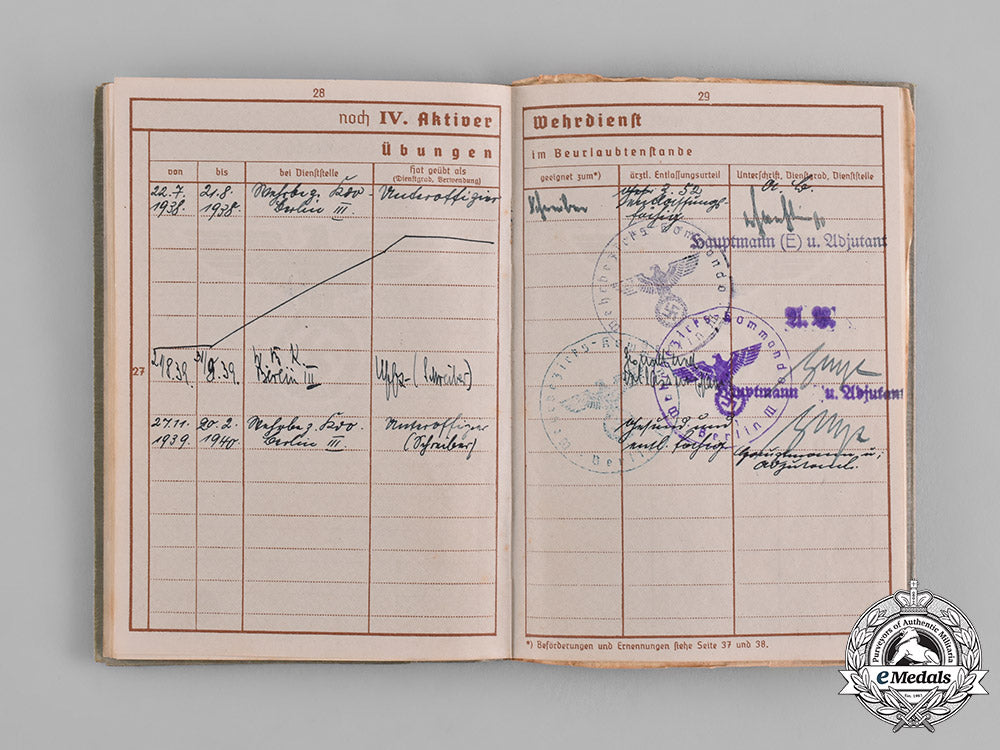 28
noch IV. Aktiver
Übungen
von
bis
bei Dienststelle
Hat geübt als
(Dienstgrad, Verwendung)
22.7.
1938.
21.8.
1938.
Wehrbez. Kdo.
Berlin III.
Unteroffizier
27
39.
9.39.
Berlin III
Uffz. (Schreiber)
27.11.
1939
20.2.
1940.
Wehrbez. Kdo.
Berlin III.
Unteroffizier
(Schreiber)
29
Wehrdienst
im Beurlaubtenstande
geeignet zum*)
ärztl. Entlassungsurteil
Unterschrift, Dienstgrad, Dienststelle
Schreiber
A. B.
Hauptmann (E) u. Adjutant
Wehrbezirks-Kommando
A. B.
Wehrbezirks-Kommando
Berlin III
Hauptmann u. Adjutant
Wehrbezirks-Kommando
Berlin
Gesund und
entl. fähig
Hauptmann u.
Adjutant.
*) Beförderungen und Ernennungen siehe Seite 37 und 38.
Purveyors of Authentic Militaria
eMedals